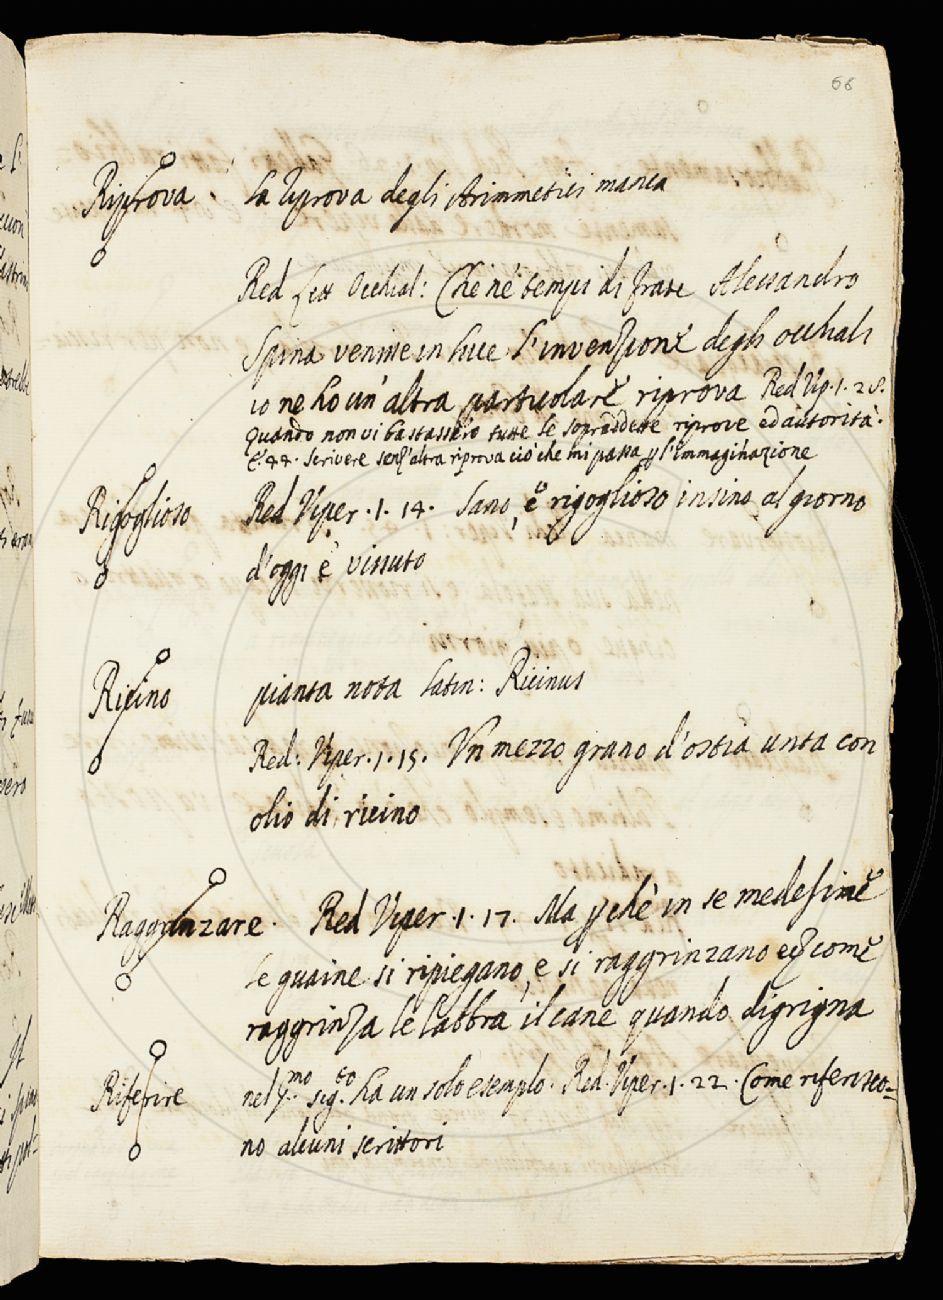 68
Riprova La riprova degli Arimmetici manca
Red Lett Occhial: Che ne tempi di frate Alessandro
Spina venisse in luce l'invenzione degli occhiali
io ne ho un'altra particolare riprova Red Vip. 1. 28.
Quando non vi bastassero tutte le sopraddette riprove ed autorità.
E. 44. scrivere senz'altra riprova ciò che mi passa p l'Immaginazione
Rigoglioso Red Viper. 1. 14. Sano, e rigoglioso insino al giorno
d'oggi è vissuto
Ricino pianta nota latin: Ricinus
Red: Viper. 1. 15. Un mezzo grano d'ostia unta con
olio di ricino
Raggrinzare. Red Viper. 1. 17. Ma p chè in se medesime
le guaine si ripiegano, e si raggrinzano come
raggrinza le labbra il cane quando digrigna
Riferire nel p.mo sig.to ha un solo esemplo. Red. Viper. 1. 22. Come riferisco=
no alcuni scrittori